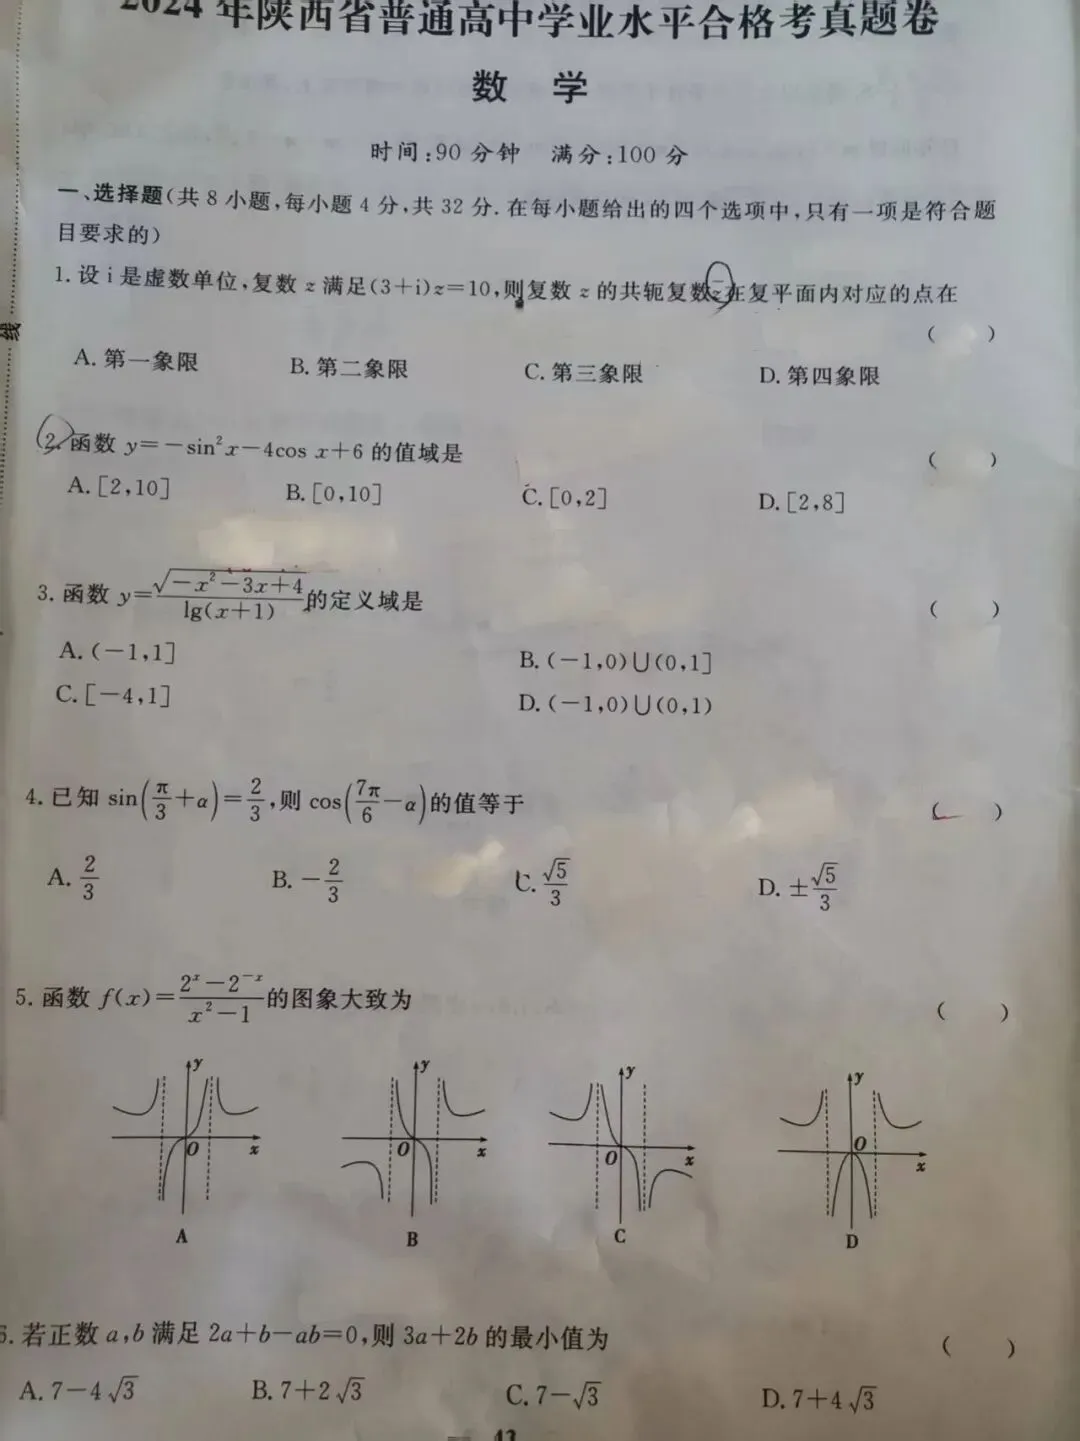 2024 年陕西省普通高中学业水平合格考真题卷
数 学
时间:90 分钟 满分:100 分
一、选择题(共 8 小题,每小题 4 分,共 32 分. 在每小题给出的四个选项中,只有一项是符合题
目要求的)
1. 设 i 是虚数单位,复数 z 满足(3+i)z=10,则复数 z 的共轭复数z̄在复平面内对应的点在
( )
A. 第一象限 B. 第二象限 C. 第三象限 D. 第四象限
线
2. 函数 y=-sin²x-4cos x+6 的值域是 ( )
A. [2,10] B. [0,10] C. [0,2] D. [2,8]
3. 函数 y=√(-x²-3x+4)/lg(x+1)的定义域是 ( )
A. (-1,1] B. (-1,0)∪(0,1]
C. [-4,1] D. (-1,0)∪(0,1)
4. 已知 sin(π/3+α)=2/3,则 cos(7π/6-α)的值等于 ( )
A. 2/3 B. -2/3 C. √5/3 D. ±√5/3
5. 函数 f(x)=(2ˣ-2⁻ˣ)/(x²-1)的图象大致为 ( )
y y y y
O x O x O x O x
A B C D
6. 若正数 a,b 满足 2a+b-ab=0,则 3a+2b 的最小值为 ( )
A. 7-4√3 B. 7+2√3 C. 7-√3 D. 7+4√3
43